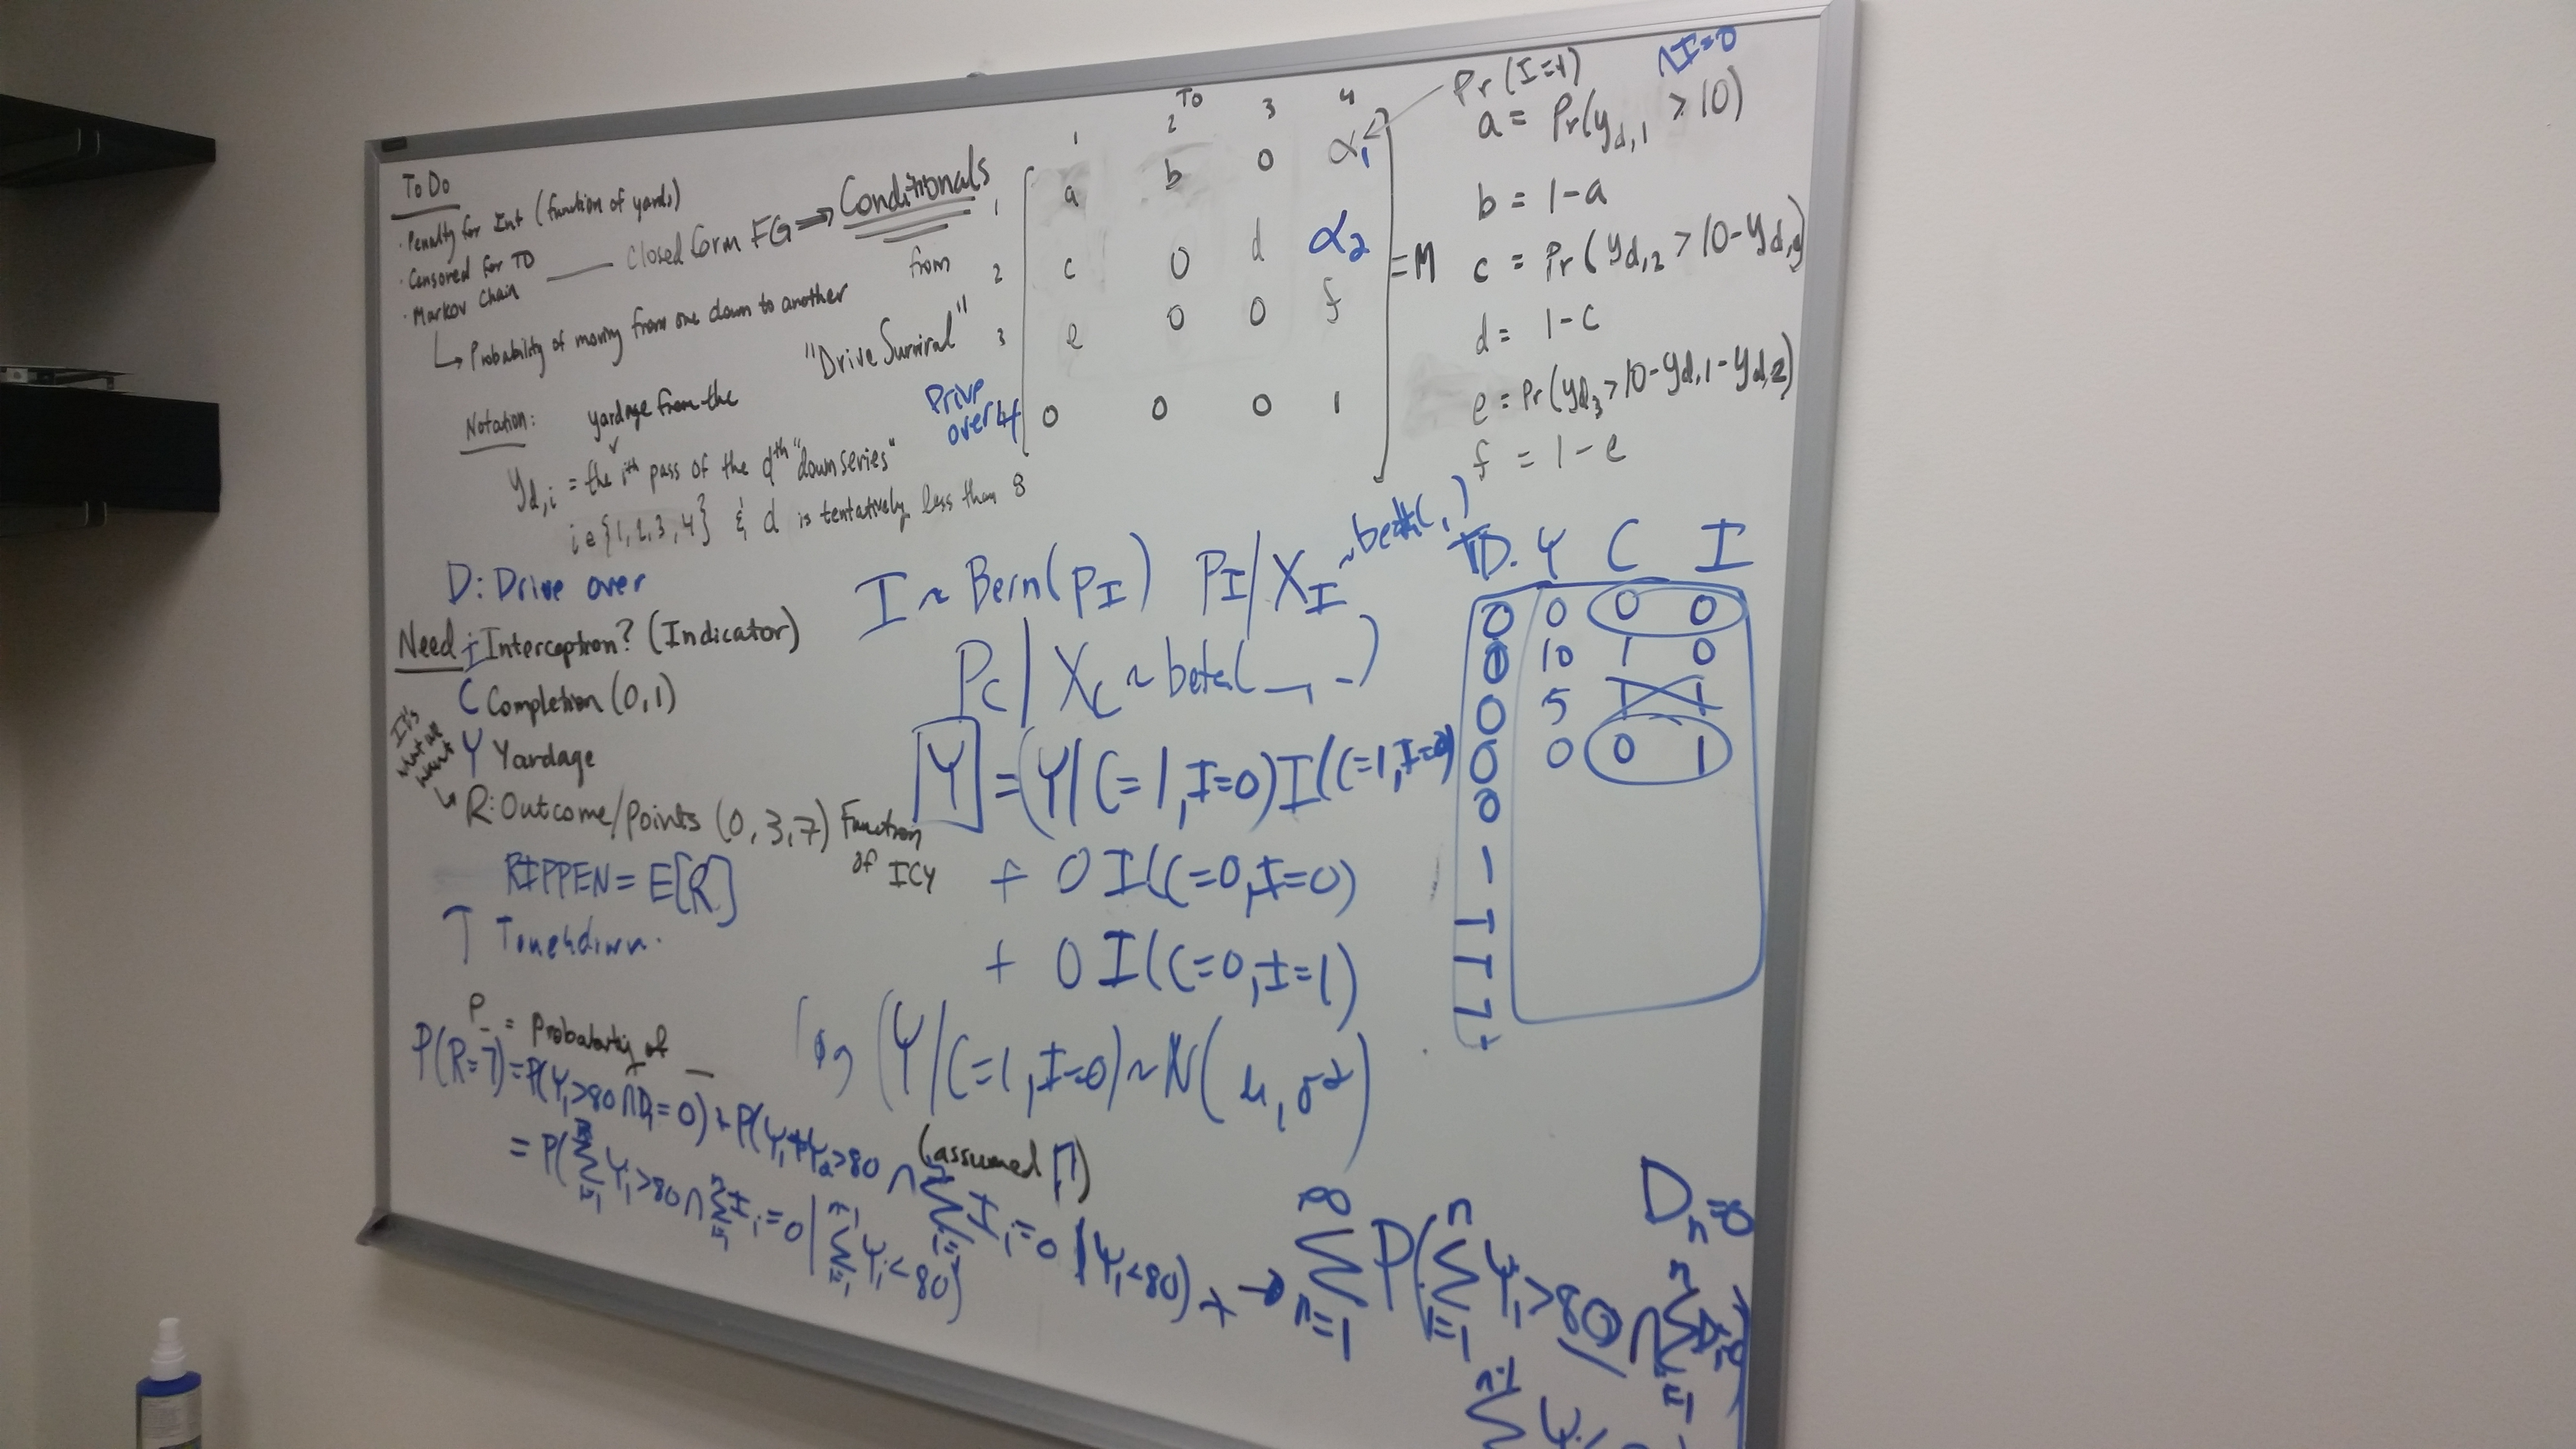 To Do
· Penalty for Int (function of yards)
· Censored for TD
· Markov Chain —— Closed form FG ⇒ Conditionals
↳ Probability of moving from one down to another
"Drive Survival"
Notation: yardage from the
y_{d,i} = the i^{th} pass of the d^{th} "down series"
i ∈ {1, 2, 3, 4} & d is tentatively less than 8
To
1 2 3 4
from
1 a b 0 α_1
2 c 0 d α_2
3 e 0 0 f
Drive over 4 0 0 0 1
= M
Pr(I=1)
∩ I=0
a = Pr(y_{d,1} > 10)
b = 1-a
c = Pr(y_{d,2} > 10-y_{d,1})
d = 1-c
e = Pr(y_{d,3} > 10-y_{d,1}-y_{d,2})
f = 1-e
D: Drive over
Need I Interception? (Indicator)
C Completion (0,1)
Y Yardage
It's what we want
↳ R: Outcome/Points (0, 3, 7) Function of ICY
RIPPEN = E[R]
T Touchdown.
P_ = Probability of _
I ~ Bern(p_I) P_I | X_I ~ beta( , )
P_C | X_C ~ beta(_, _)
Y = (Y | C=1, I=0) I(C=1, I=0)
+ 0 I(C=0, I=0)
+ 0 I(C=0, I=1)
log (Y | C=1, I=0) ~ N(μ, σ²)
(assumed Π)
D. Y C I
0 0 0 0
0 10 1 0
0 5 1 1
0 0 0 1
0
1
T
T
7
P(R=7) = P(Y_1>80 ∩ D_1=0) + P(Y_1+Y_2>80 ∩ Σ_{i=1} I_i=0 | Y_1<80) +
= P(Σ_{i=1} Y_i>80 ∩ Σ_{i=1}^{n} I_i=0 | Σ_{i=1}^{n-1} Y_i<80)
→ Σ_{n=1}^{∞} P(Σ_{i=1}^{n} Y_i>80 ∩ Σ_{i=1}^{n} D_i=0
D_n=0
n-1
Σ Y_i